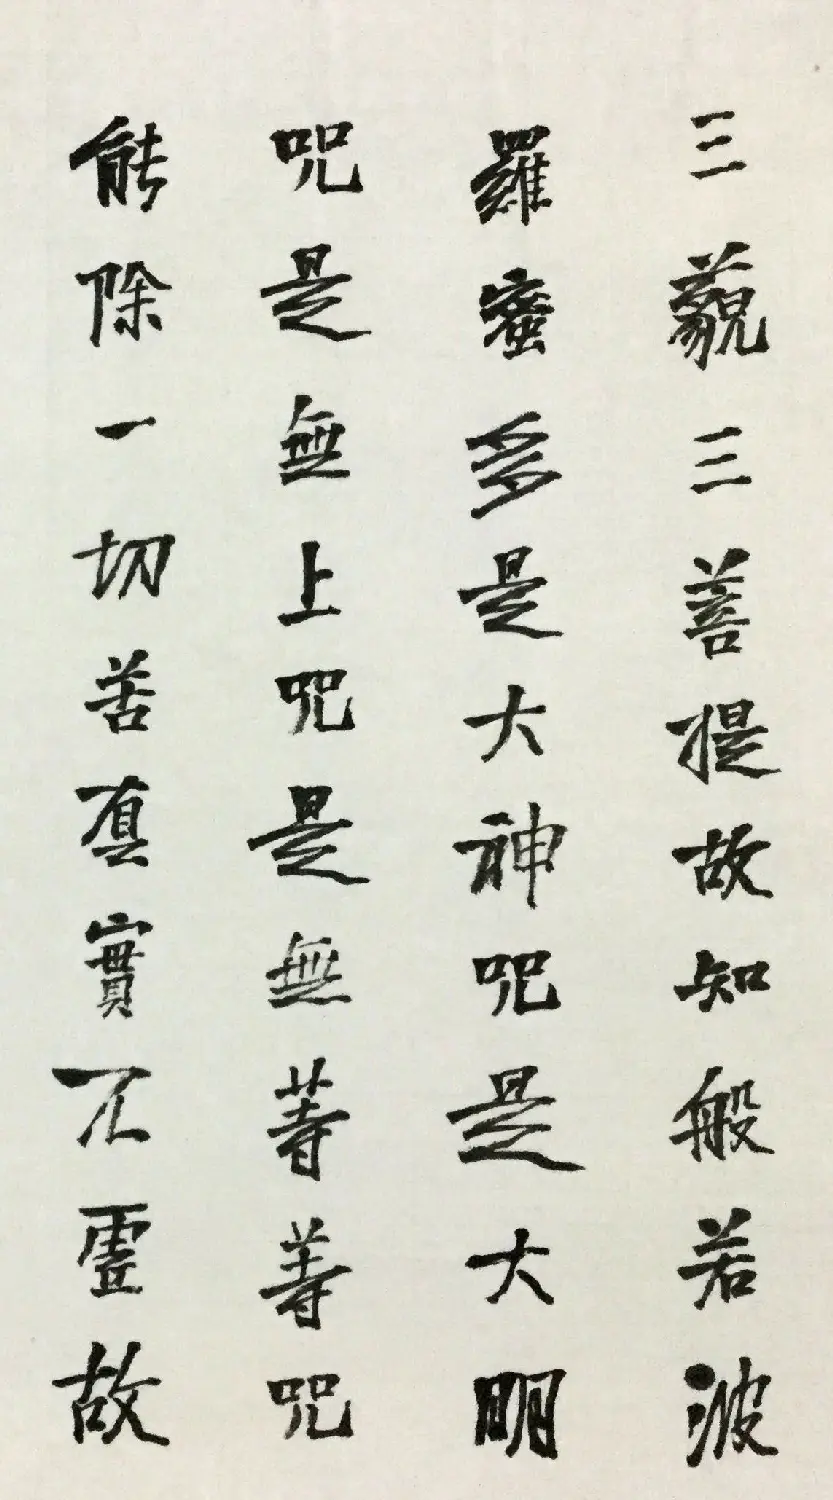 三藐三菩提故知般若波
羅蜜多是大神咒是大明
咒是無上咒是無等等咒
能除一切苦真實不虛故